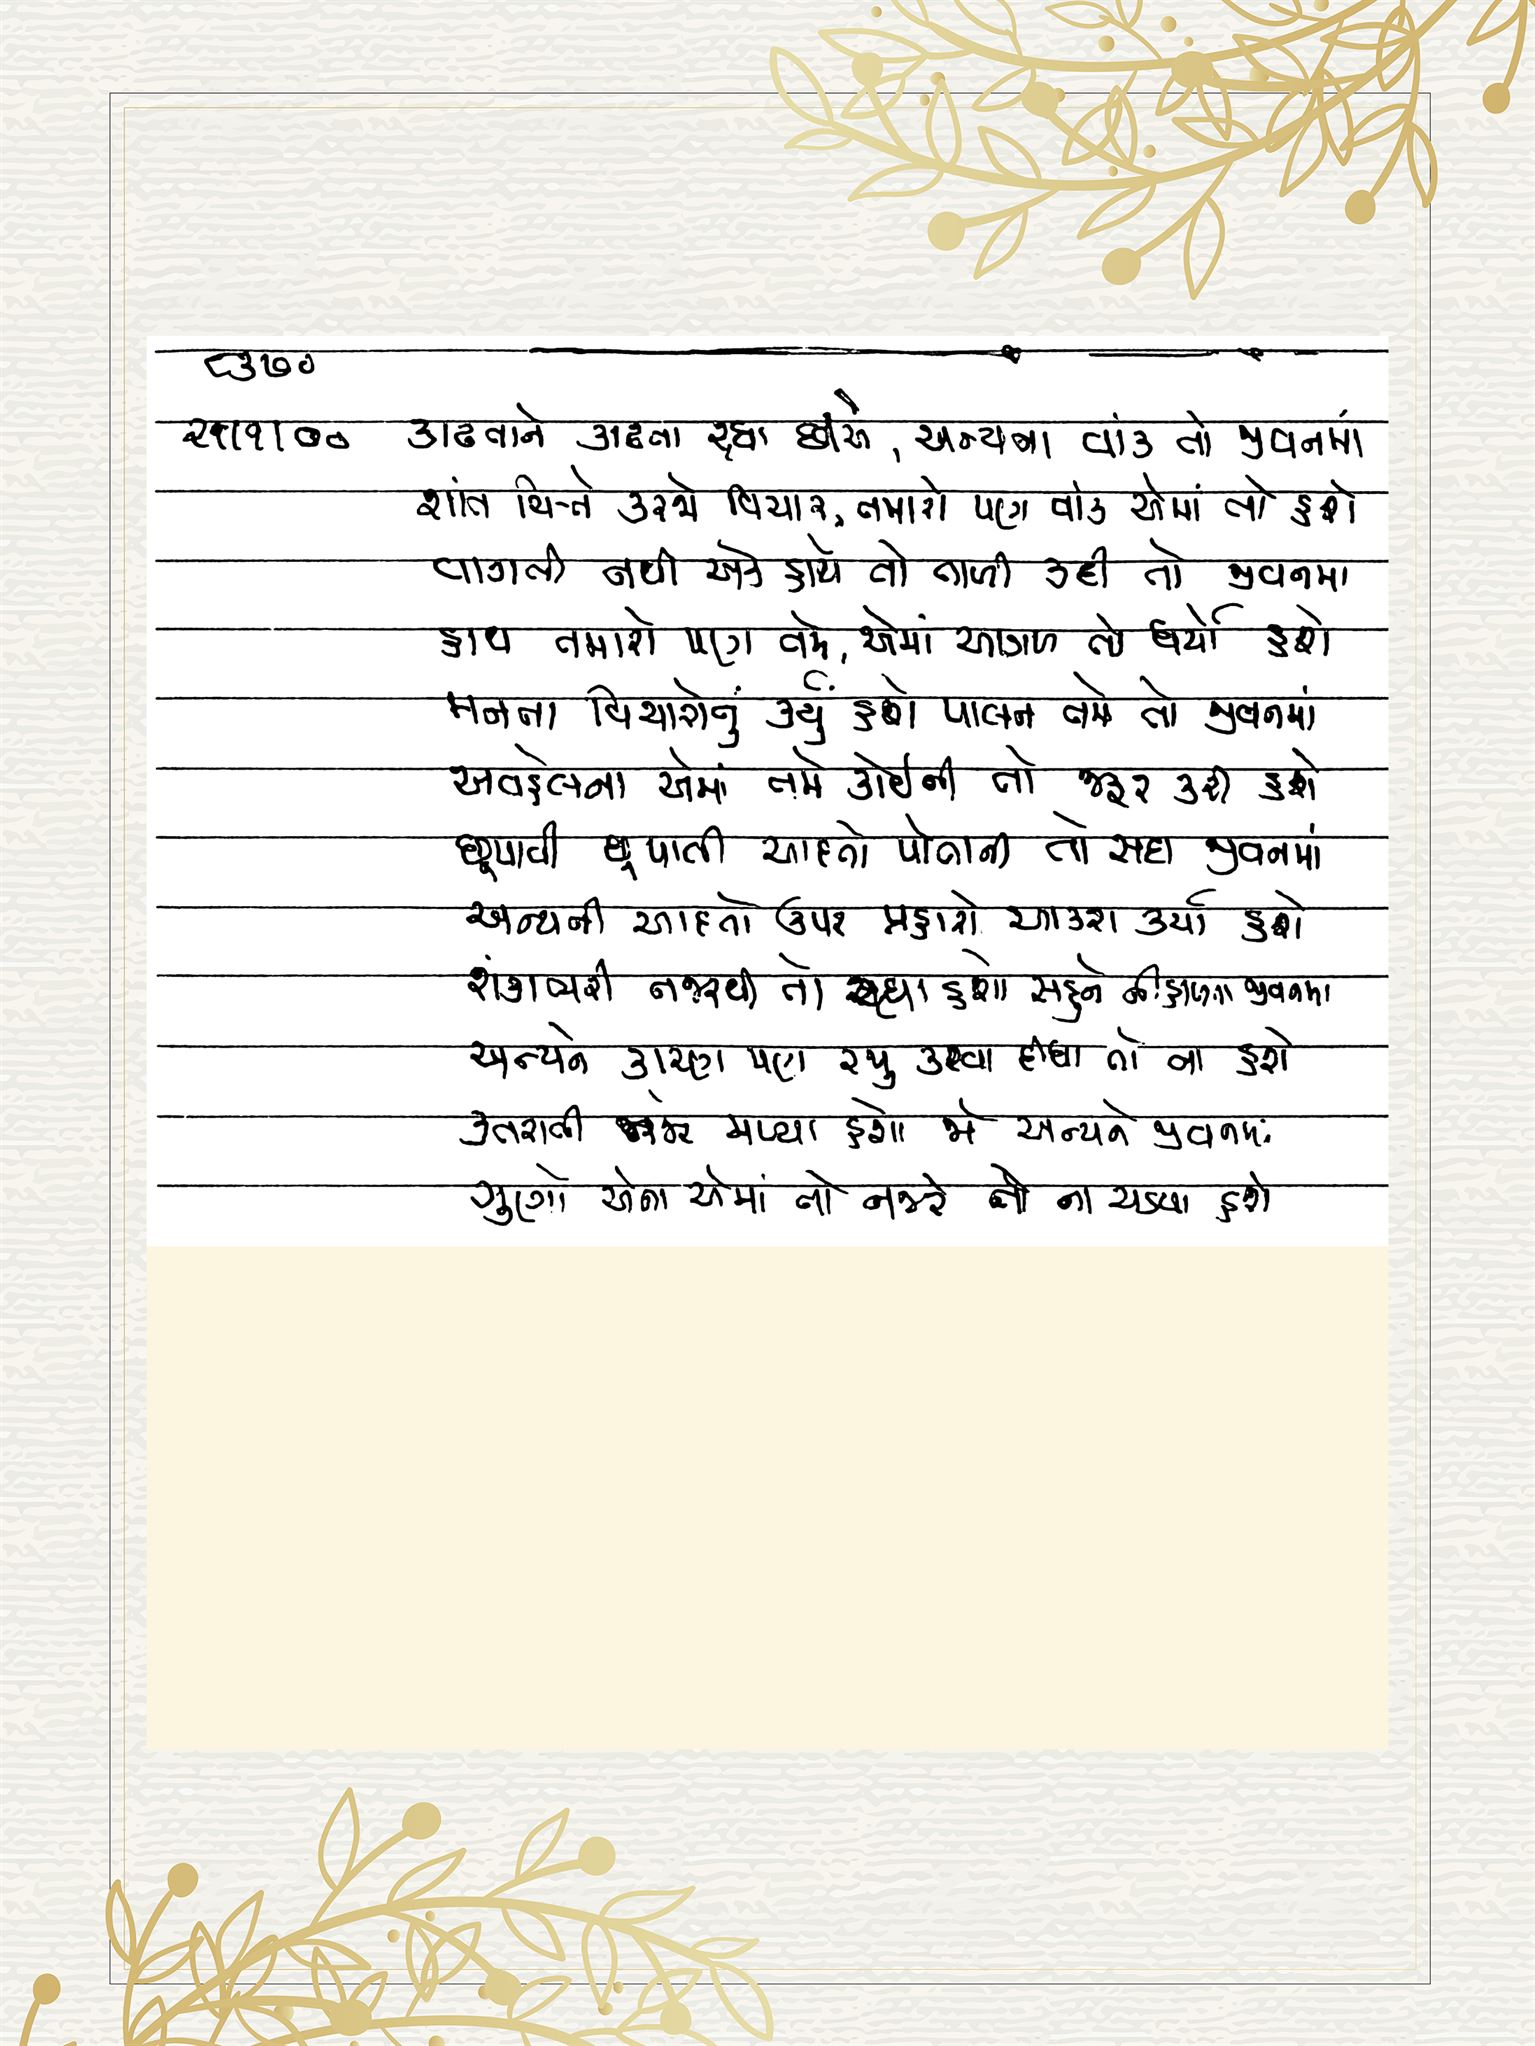 ૮૩૭૦
૨૧/૧/૦૦ કાઢતાને કાઢતા રહ્યા છો, અન્યના વાંક તો જીવનમાં
શાંત ચિત્તે કરજો વિચાર, તમારો પણ વાંક એમાં તો હશે
વાગતી નથી એક હાથે તો તાળી કદી તો જીવનમા
હાથ તમારો પણ તમે, એમાં આગળ તો ધર્યો હશે
મનના વિચારોનું કર્યું હશે પાલન તમે તો જીવનમાં
અવહેલના એમાં તમે કોઈની તો જરૂર કરી હશે
છૂપાવી છૂપાતી આદતો પોતાની તો સદા જીવનમાં
અન્યની આદતો ઉપર પ્રહારો આકરા કર્યા હશે
શંકાભરી નજરથી તો રહ્યા હશો સહુને નીહાળતા જીવનમા
અન્યને કારણ પણ રજુ કરવા દીધા તો ના હશે
કતરાતી નજરે મળ્યા હશો જો અન્યને જીવનમાં
ગુણો એના એમાં તો નજરે તો ના ચડયા હશે